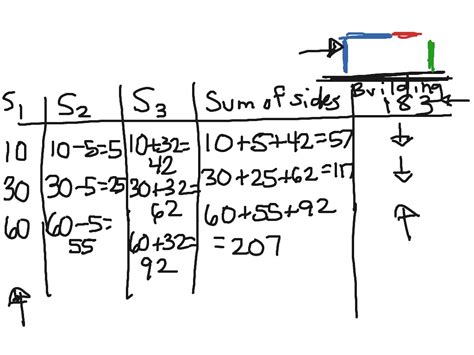 Building
S₁ S₂ S₃ Sum of sides 183
10 10-5=5 10+32= 10+5+42=57
42
30 30-5=25 30+32= 30+25+62=117
62
60 60-5= 60+32= 60+55+92
55 92 =207